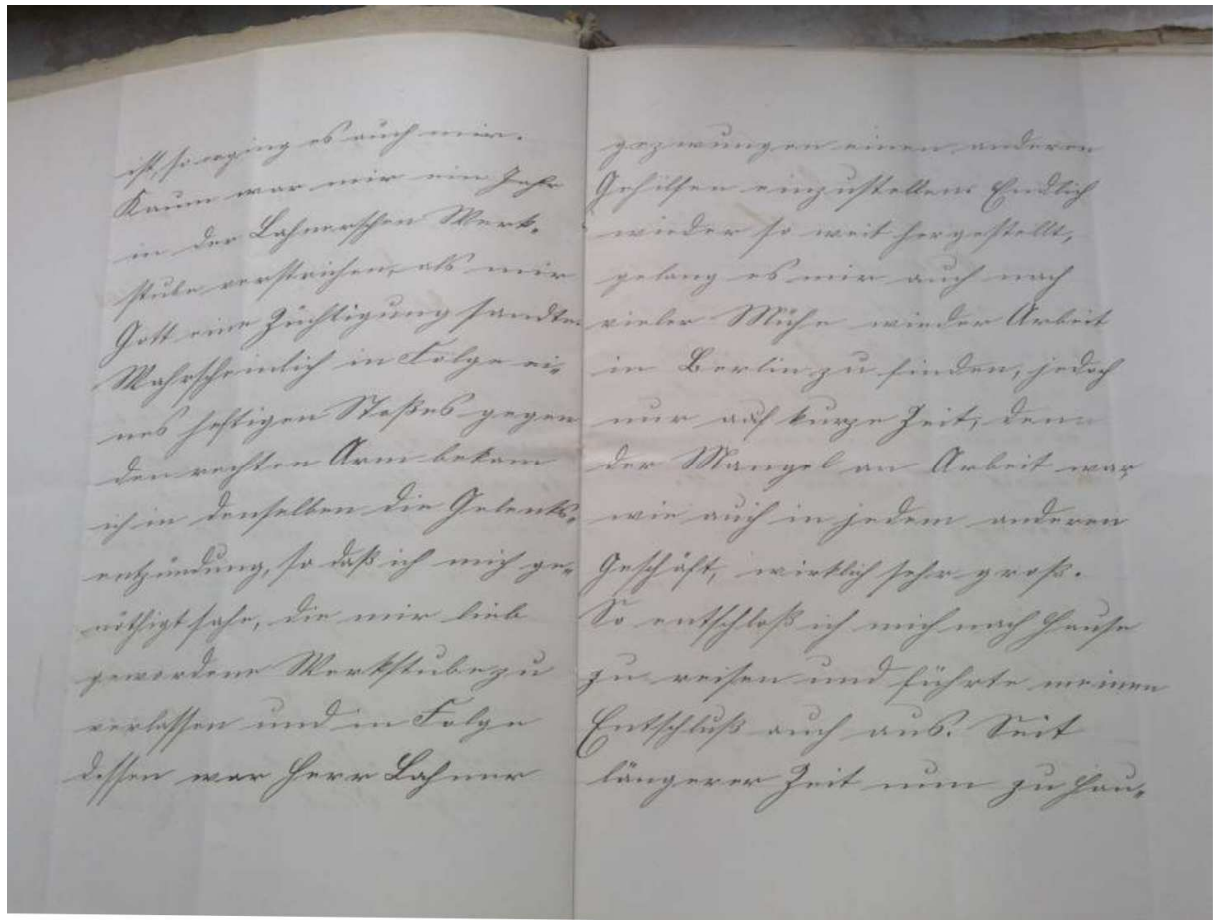 ist, so erging es auch mir.
Kaum war mir ein Jahr
in der Lahnerschen Werk-
stube verstrichen, als mir
Gott eine Züchtigung sandte.
Wahrscheinlich in Folge ei-
nes heftigen Stoßes gegen
den rechten Arm bekam
ich in denselben die Gelenks-
entzündung, so daß ich mich ge-
nöthigt sahe, die mir lieb
gewordene Werkstube zu
verlassen und in Folge
dessen war Herr Lahner
gezwungen einen anderen
Gehilfen einzustellen. Endlich
wieder so weit hergestellt,
gelang es mir auch nach
vieler Mühe wieder Arbeit
in Berlin zu finden, jedoch
nur auf kurze Zeit, denn
der Mangel an Arbeit war,
wie auch in jedem anderen
Geschäft, wirklich sehr groß.
So entschloß ich mich nach Hause
zu reisen und führte meinen
Entschluß auch aus. Seit
längerer Zeit nun zu Hau-